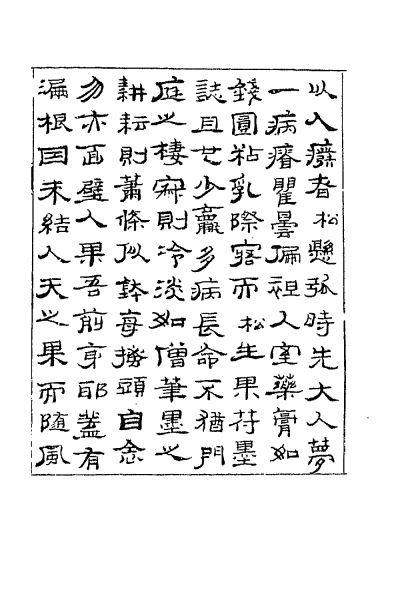 以人癈者松懸弧時先大人夢
一病瘠瞿曇偏袒入室藥膏如
錢圓粘乳際寤而松生果符墨
誌且也少羸多病長命不猶門
庭之棲寂則冷淡如僧筆墨之
耕耘則蕭條似鉢每搔頭自念
勿亦面壁人果吾前身耶蓋有
漏根因未結人天之果而隨風